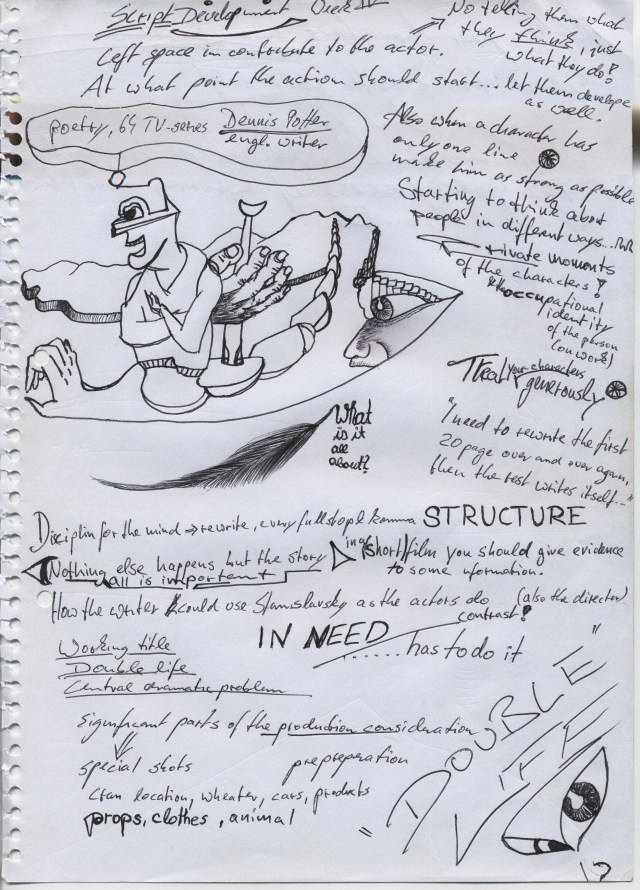 Script Development
No telling them what
they think, just
what they do!
Left space in contribute to the actor.
At what point the action should start... let them develope
as well.
poetry, 64 TV-series Dennis Potter
engl. writer
Also when a character has
only one line
made him as strong as possible
Starting to think about
people in different ways...
private moments
of the characters!
occupational
identity
of the person
(on work)
Treat your characters
generously
"I need to rewrite the first
20 page over and over again,
then the rest writes itself..."
What
is it
all
about?
Disciplin for the mind → rewrite, every full stop & komma STRUCTURE
Nothing else happens, but the story
all is important
in a (short) film you should give evidence
to some nformation.
How the writer could use Stanislavsky as the actors do (also the director)
contrast!
IN NEED
....... has to do it
Working title
Double life
Central dramatic problem
"DOUBLE
LIFE"
Significant parts of the production consideration
special shots prepreparation
location, wheater, cars, products
props, clothes, animal